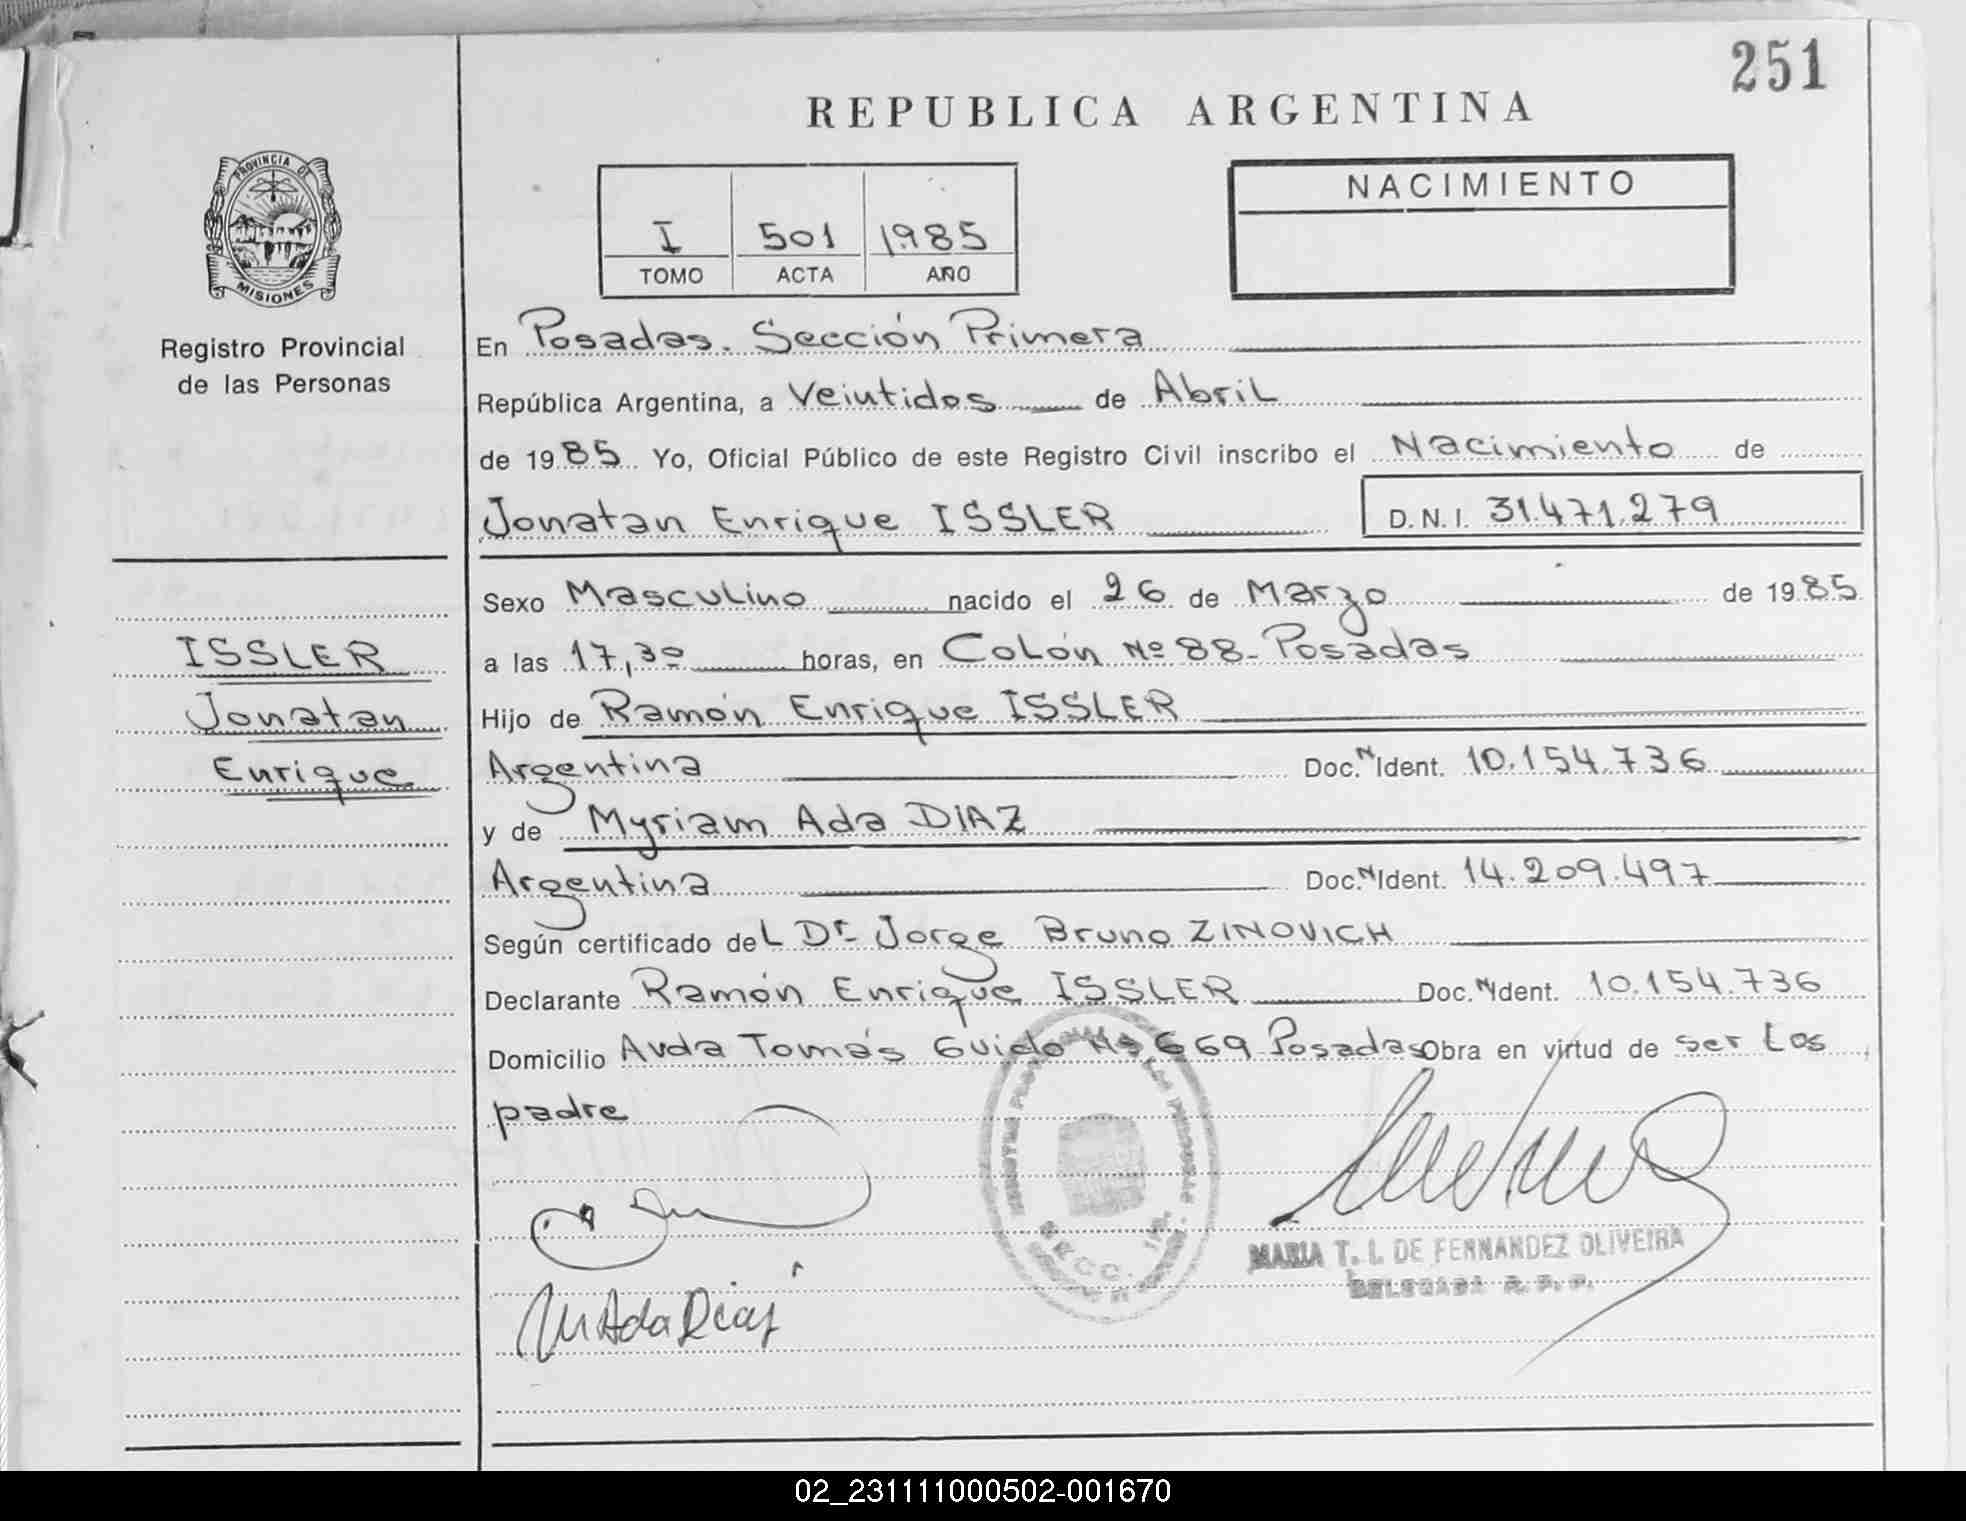 251
REPUBLICA ARGENTINA
PROVINCIA DE
MISIONES
Registro Provincial
de las Personas
I 501 1985
TOMO ACTA AÑO
NACIMIENTO
En Posadas. Sección Primera
República Argentina, a Veintidos de Abril
de 1985 Yo, Oficial Público de este Registro Civil inscribo el Nacimiento de
Jonatan Enrique ISSLER D.N.I. 31.471.279
Sexo Masculino nacido el 26 de Marzo de 1985
ISSLER
Jonatan
Enrique
a las 17,30 horas, en Colón Nº 88- Posadas
Hijo de Ramón Enrique ISSLER
Argentina Doc. N Ident. 10.154.736
y de Myriam Ada DIAZ
Argentina Doc. N Ident. 14.209.497
Según certificado del Dr. Jorge Bruno ZINOVICH
Declarante Ramón Enrique ISSLER Doc. N Ident. 10.154.736
Domicilio Avda Tomás Guido Nº 669 Posadas Obra en virtud de ser los
padre
MARIA T. I. DE FERNANDEZ OLIVEIRA
DELEGADA R. P. P.
M Ada Diaz
02_231111000502-001670